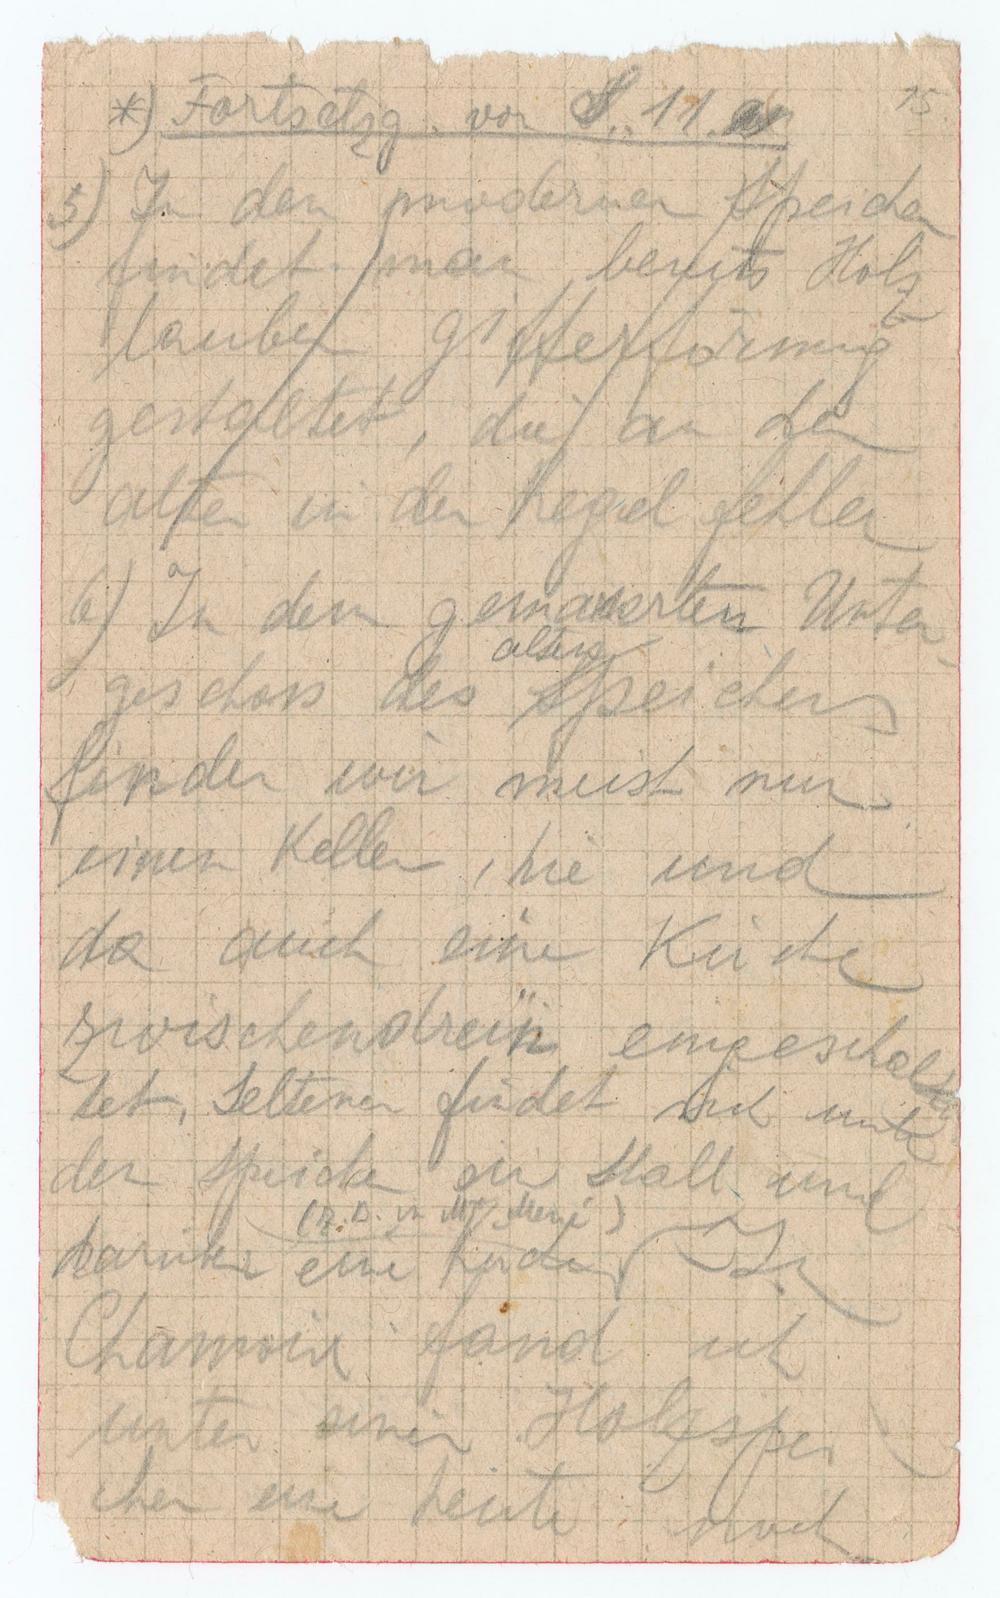 15.
*) Fortsetzg. von S. 11.
5) In den modernen Speichern
findet man bereits Holz
lauben gitterförmig
gestaltet, die an den
alten in der Regel fehlen
6) In dem gemauerten Unter-
geschoss des alten Speichers
finden wir meist nur
einen Keller, hie und
da auch eine Küche
zwischendrein eingeschal
tet. Seltener findet sich unter
den Speicher ein Stall und
darüber eine Küche (z. B. in). In
Chamois fand ich
unter einen Holzspei
cher eine heute noch